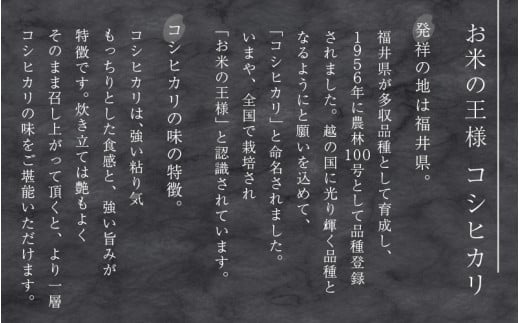 お米の王様 コシヒカリ
発祥の地は福井県。
福井県が多収品種として育成し、
1956年に農林100号として品種登録
されました。越の国に光り輝く品種と
なるようにと願いを込めて、
「コシヒカリ」と命名されました。
いまや、全国で栽培され
「お米の王様」と認識されています。
コシヒカリの味の特徴。
コシヒカリは、強い粘り気
もっちりとした食感と、強い旨みが
特徴です。炊き立ては艶もよく
そのまま召し上がって頂くと、より一層
コシヒカリの味をご堪能いただけます。